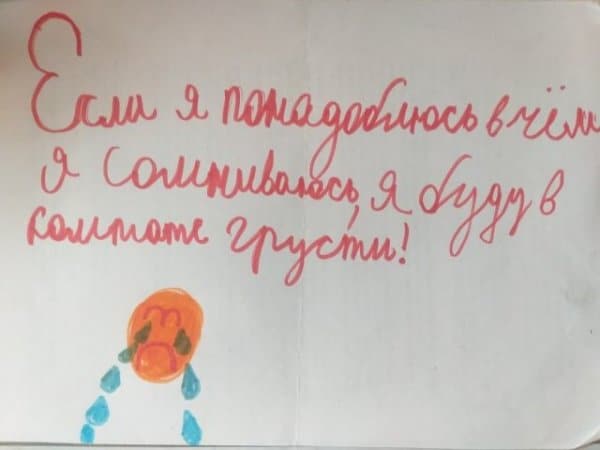 Если я понадоблюсь в чём
я сомниваюсь, я буду в
комнате грусти!